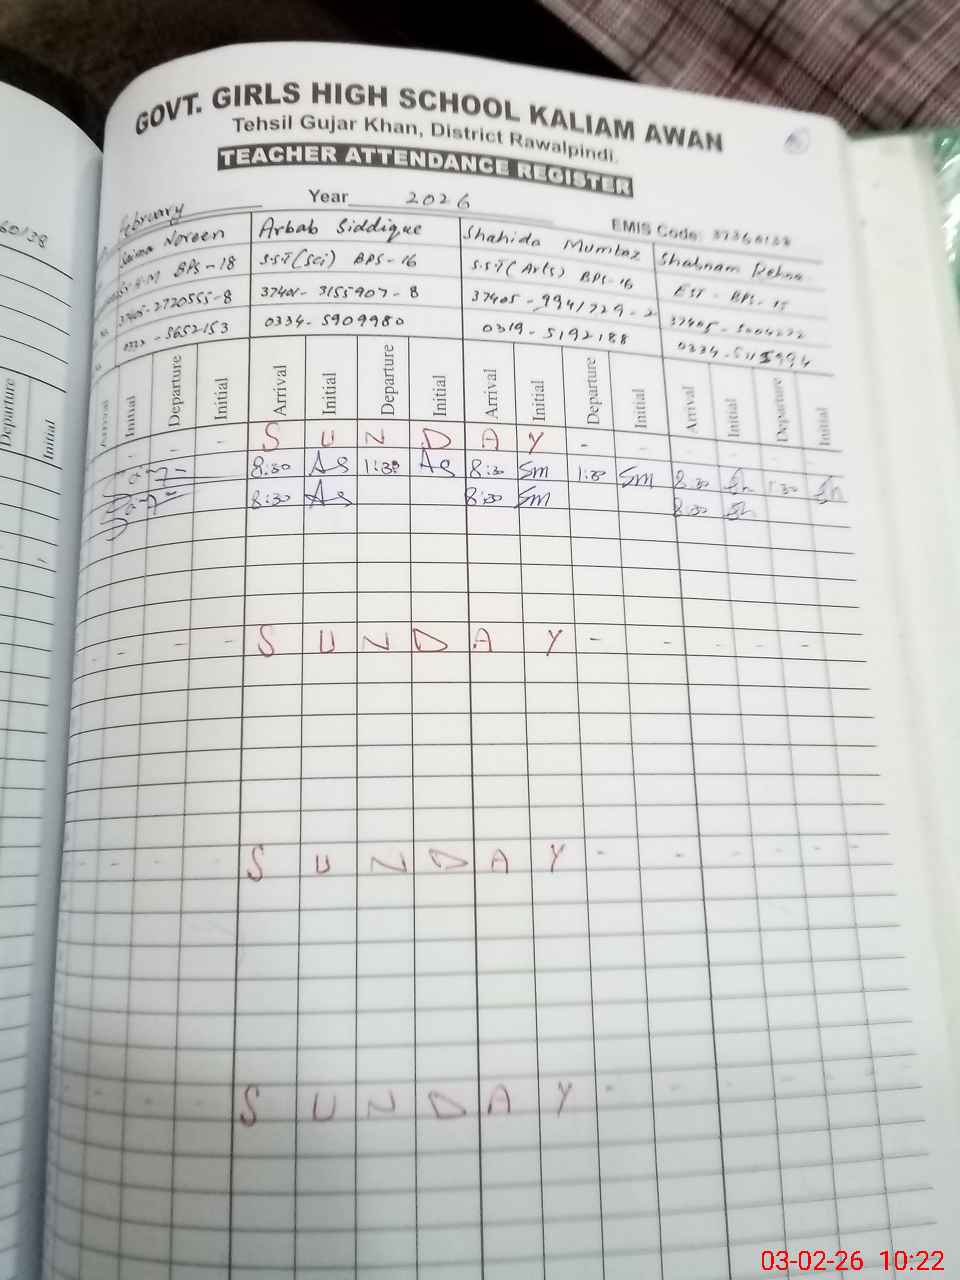 60138
GOVT. GIRLS HIGH SCHOOL KALIAM AWAN
Tehsil Gujar Khan, District Rawalpindi.
TEACHER ATTENDANCE REGISTER
February Year 2026 EMIS Code: 37360138
Saima Noreen Arbab Siddique Shahida Mumtaz Shabnam Rehna
BPS-18 S.ST(Sci) BPS-16 S.ST(Arts) BPS-16 EST - BPS-15
37405-2720555-8 37401-3155907-8 37405-9941729-2
5652153 0334-5909980 0319-5192188
Departure Initial Arrival Initial Departure Initial Arrival Initial Departure Initial Arrival Initial Departure Initial Arrival Initial Departure Initial
- - - S U N D A Y - - - - - -
8:30 AS 1:30 AS 8:30 Sm 1:30 Sm 8:30 Sh 1:30 Sh
8:30 AS 8:30 Sm 8:30 Sh
- - - - S U N D A Y - - - - - -
- - - - S U N D A Y - - - - - -
- - - - S U N D A Y - - - - - -
03-02-26 10:22